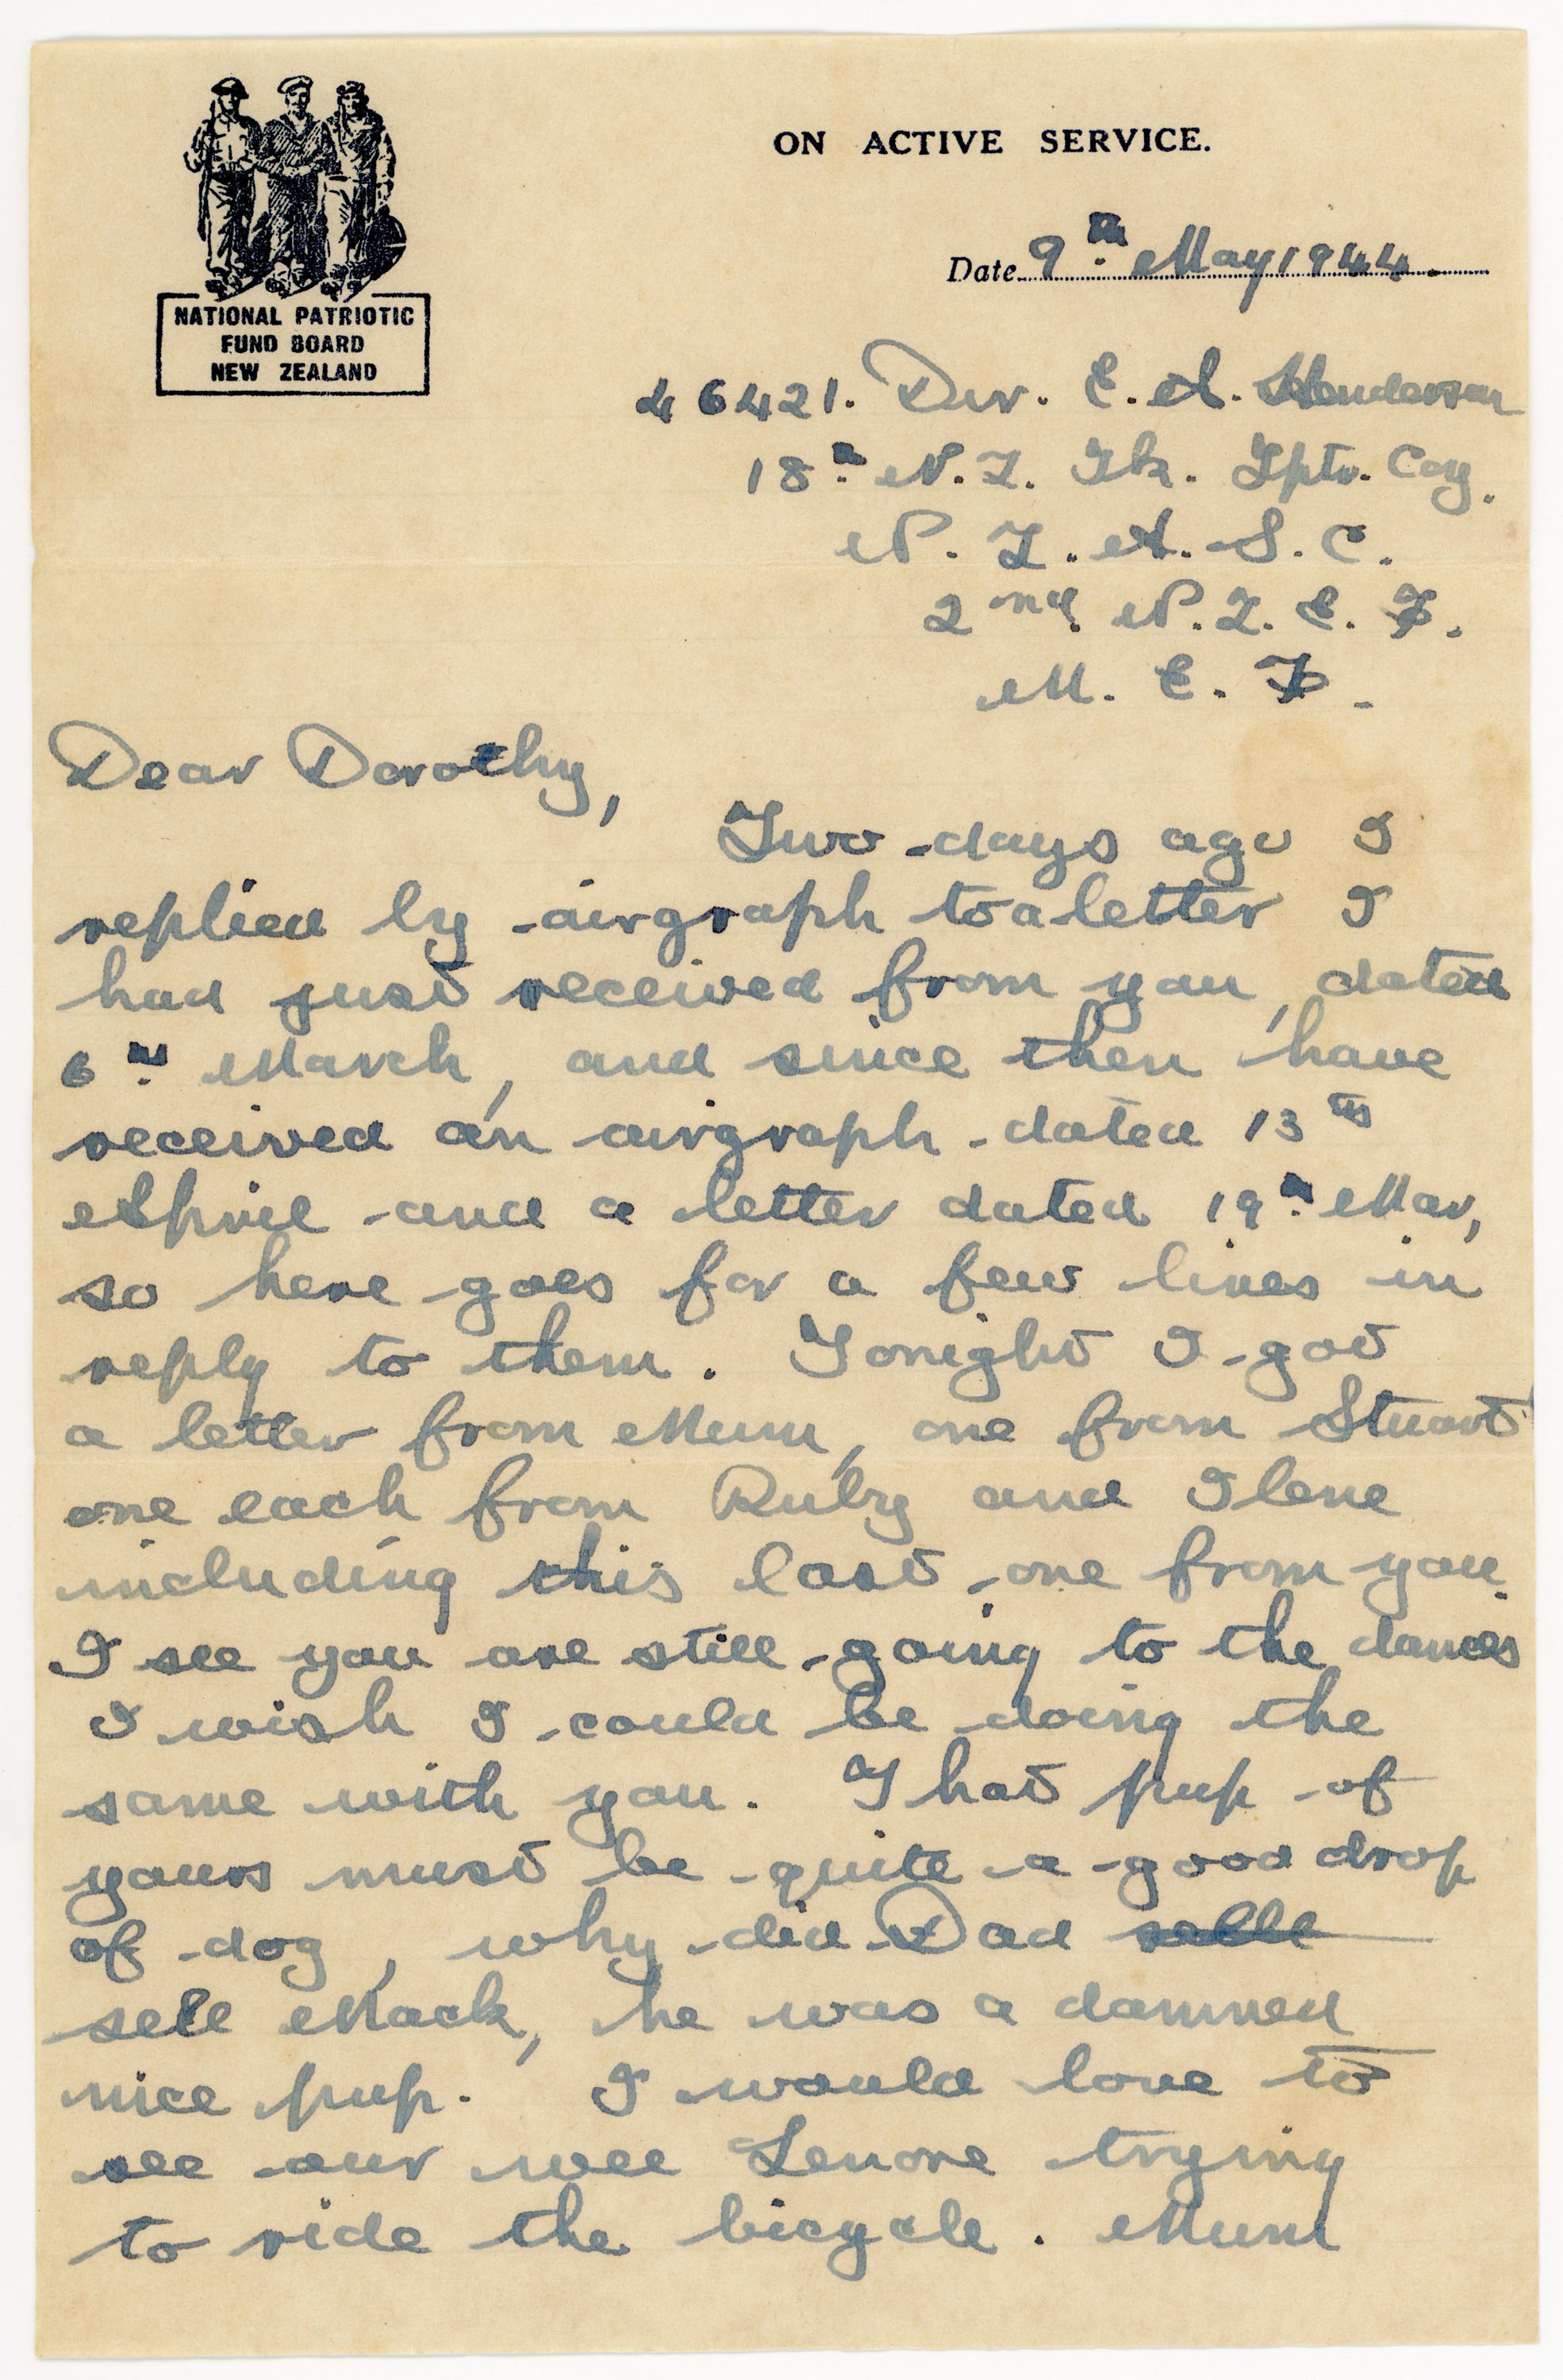 NATIONAL PATRIOTIC
FUND BOARD
NEW ZEALAND
ON ACTIVE SERVICE.
Date 9th May 1944.
46421. Dvr. E. A. Henderson
18th N. Z. Tk. Tptr. Coy.
N. Z. A. S. C.
2nd N. Z. E. F.
M. E. F.
Dear Dorothy,
Two days ago I
replied by airgraph to a letter I
had just received from you, dated
6th March, and since then have
received an airgraph dated 13th
April and a letter dated 19th Mar,
so here goes for a few lines in
reply to them. Tonight I got
a letter from Mum, one from Stuart
one each from Ruby and Ilene
including this last one from you.
I see you are still going to the dances
I wish I could be doing the
same with you. That pup of
yours must be quite a good drop
of dog, why did Dad
sell Mack, he was a damned
nice pup. I would love to
see our wee Lenore trying
to ride the bicycle. Mum